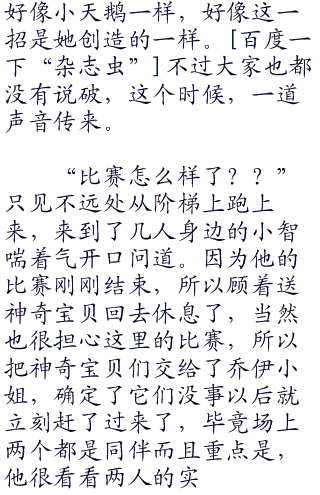 好像小天鹅一样，好像这一
招是她创造的一样。[百度一
下“杂志虫”]不过大家也都
没有说破，这个时候，一道
声音传来。
“比赛怎么样了？？”
只见不远处从阶梯上跑上
来，来到了几人身边的小智
喘着气开口问道。因为他的
比赛刚刚结束，所以顾着送
神奇宝贝回去休息了，当然
也很担心这里的比赛，所以
把神奇宝贝们交给了乔伊小
姐，确定了它们没事以后就
立刻赶了过来了，毕竟场上
两个都是同伴而且重点是，
他很看看两人的实